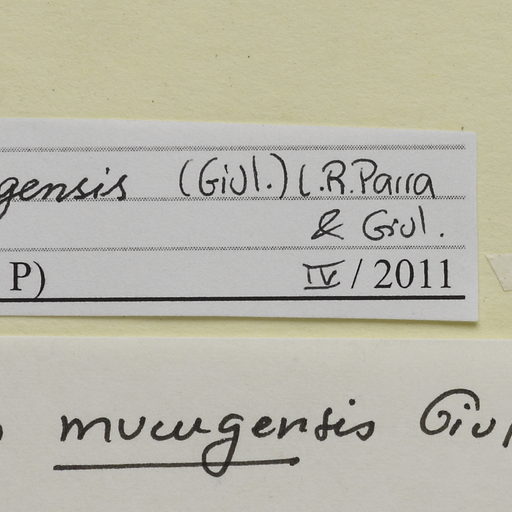 gensis (Giul.) L.R.Parra
& Giul.
P) IV / 2011
mucugensis Giul